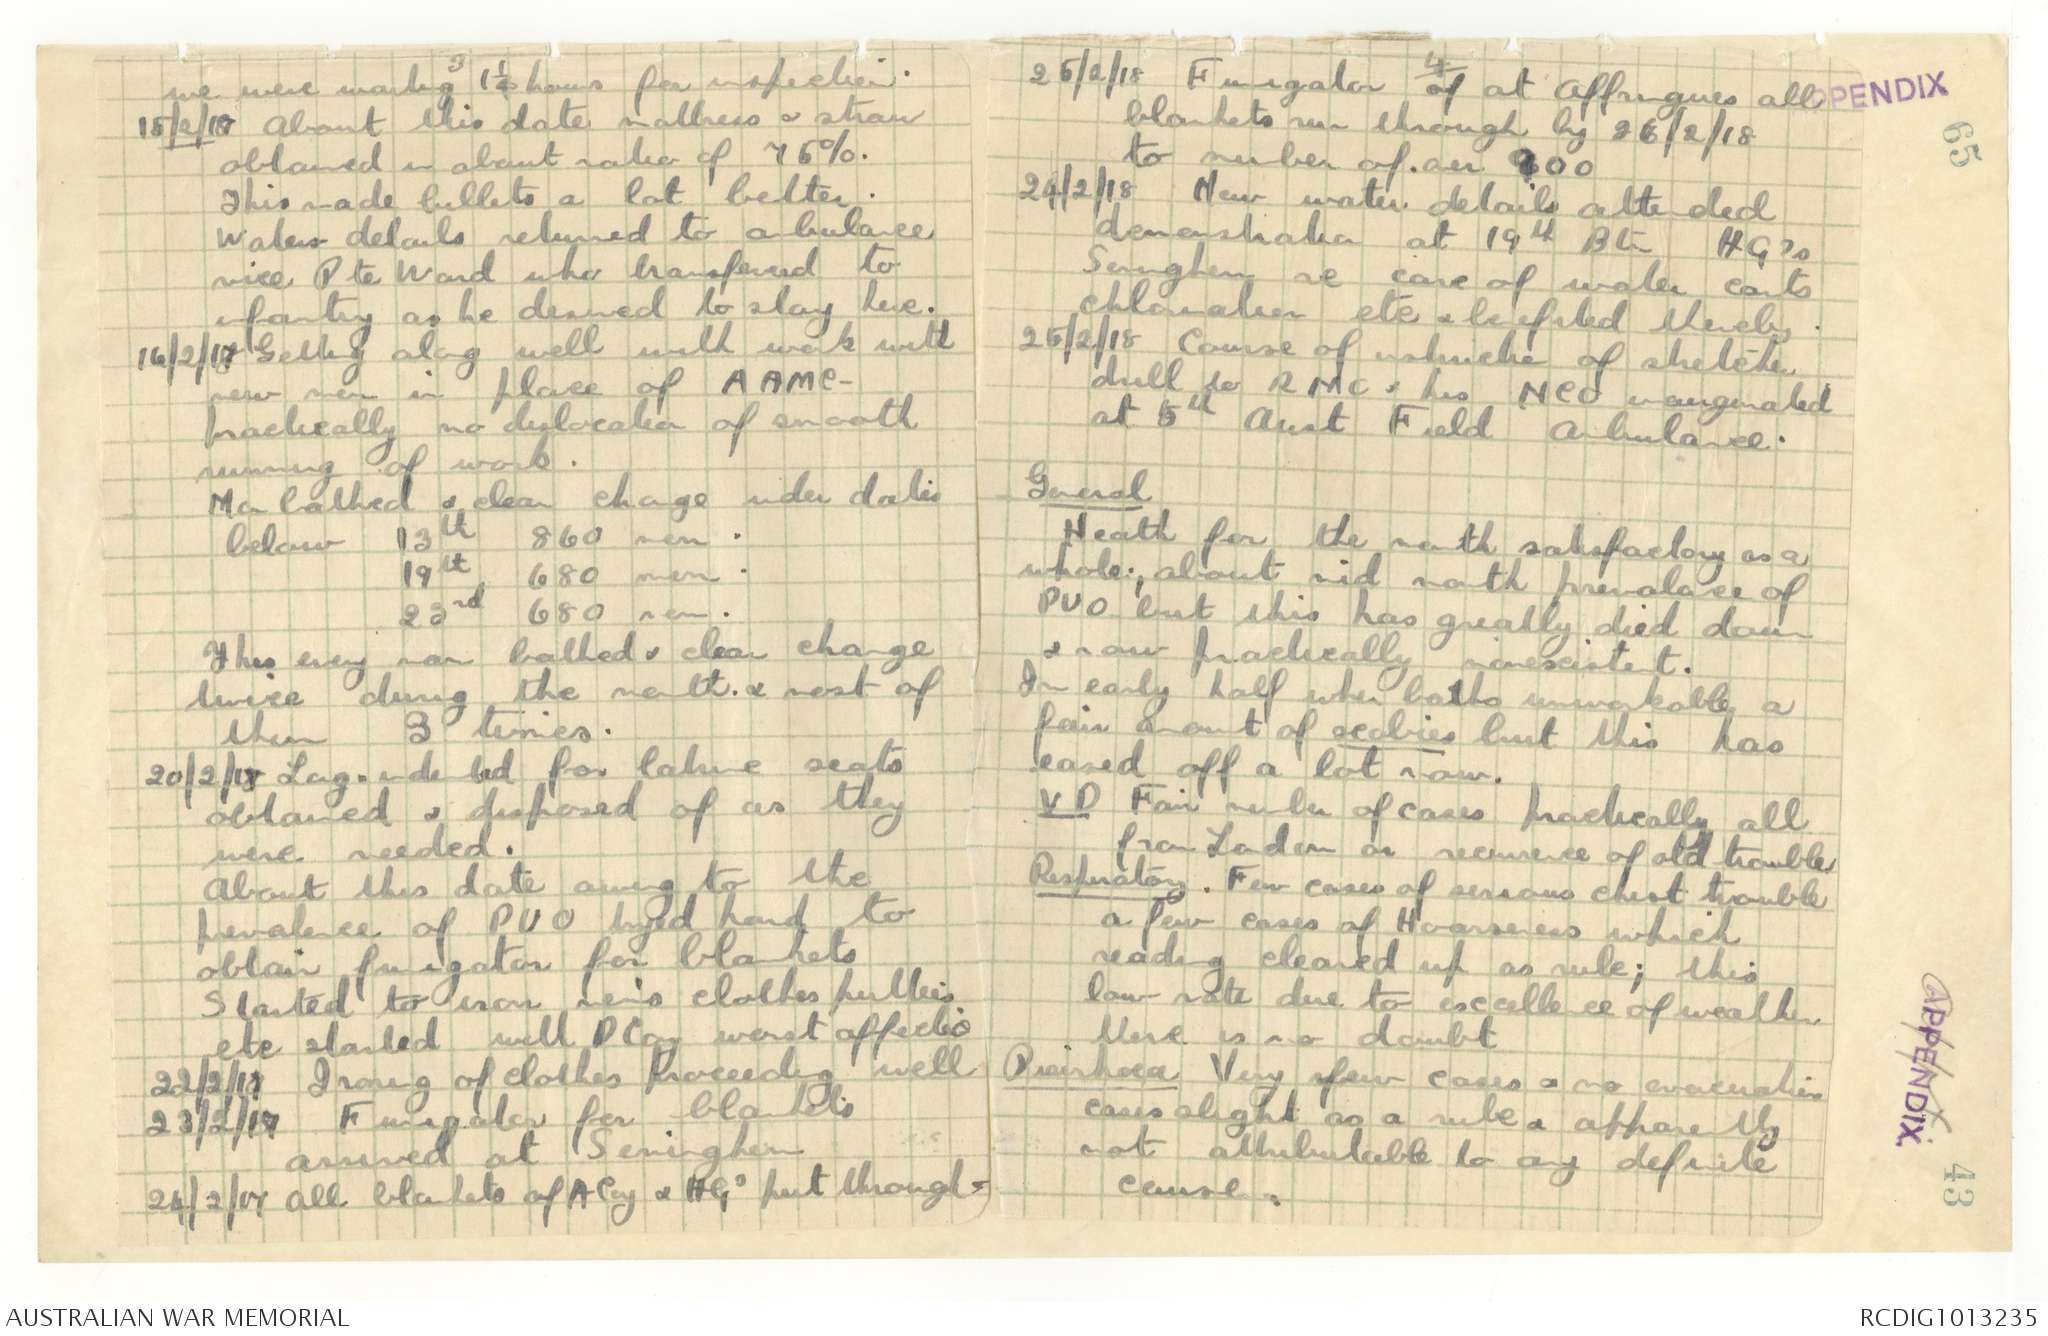 3
we were waiting 1¼ hours for inspection.
15/2/18 About this date mattress & straw
obtained in about ratio of 75%.
This made billets a lot better.
Waters details returned to ambulance
vice Pte Ward who transferred to
infantry as he desired to stay here.
16/2/18 Getting along well with work with
new men in place of AAMC -
practically no dislocation of smooth
running of work.
Men bathed & clean change under dates
below 13th 860 men.
19th 680 men.
23rd 680 men.
Thus every man bathed & clean change
twice during the month. & most of
them 3 times.
20/2/18 Long indented for latrine seats
obtained & disposed of as they
were needed.
About this date owing to the
prevalence of PUO tryed hard to
obtain fumigator for blankets
Started to iron men's clothes putties
etc started with D Coy worst affected
22/2/18 Ironing of clothes Proceeding well
23/2/18 Fumigator for blankets
arrived at Seninghem
24/2/17 All blankets of A Coy & HQs put through -
4
25/2/18 Fumigator of at Affringues all
blankets run through by 26/2/18
to number of over 900
24/2/18 New water details attended
demonstration at 19th Btn HQ's
Seninghem re care of water carts
chlorination etc & benefited thereby.
25/2/18 Course of instruction of stretcher
drill to RMO & his NCO inaugurated
at 5th Aust Field Ambulance.
General
Heath for the month satisfactory as a
whole; about mid month prevalance of
PUO but this has greatly died down
& now practically nonexistent.
In early half when baths unworkable a
fair amount of scabies but this has
eased off a lot now.
VD Fair number of cases practically all
from London or recurrence of old trouble
Respiratory. Few cases of serious chest trouble
a few cases of Hoarseness which
reading cleared up as rule; this
low rate due to excellence of weather
there is no doubt
Diarrhoea Very few cases & no evacuations
cases slight as a rule & apparently
not attributable to any definite
cause.
APPENDIX
65
APPENDIX.
43
AUSTRALIAN WAR MEMORIAL
RCDIG1013235